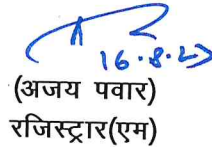 16.8.23
(अजय पवार)
रजिस्ट्रार(एम)